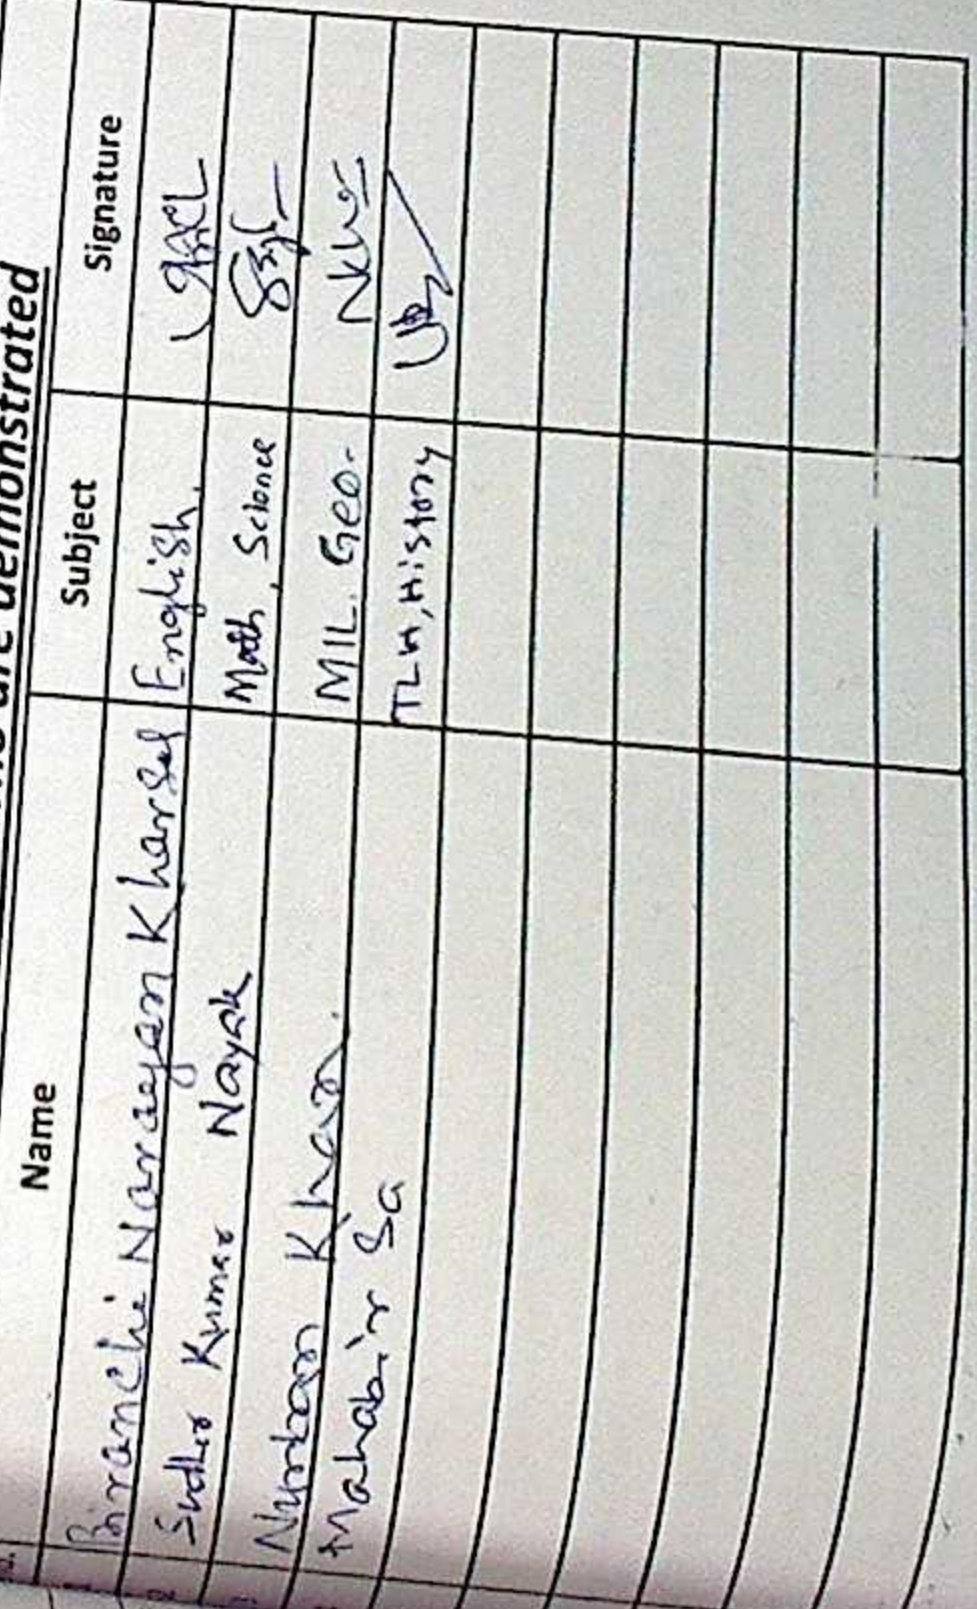 are demonstrated
Name Subject Signature
1 Biranchi Narayan Kharsel English.
2 Sudhir Kumar Nayak Math, Science
Nurban Khan. MIL. Geo.
Mahabir Sa TLH, History